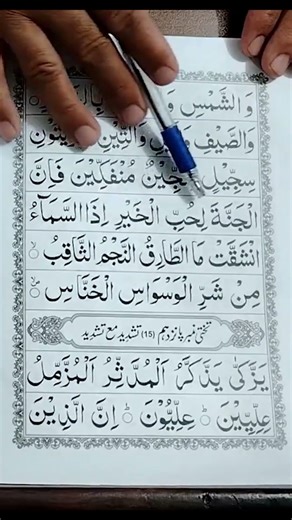 وَالشَّمْسِ
وَالصَّيْفِ وَالتِّيْنِ
سِجِّيْلٍ مُنْفَكِّيْنَ فَاِنَّ
الْجَنَّةَ لِحُبِّ الْخَيْرِ اِذَا السَّمَآءُ
انْشَقَّتْ مَا الطَّارِقُ النَّجْمُ الثَّاقِبُ
مِنْ شَرِّ الْوَسْوَاسِ الْخَنَّاسِ
تختی نمبر پانزدہم (15) تشدید مع تشدید
يَزَّكّٰى يَذَّكَّرُ الْمُدَّثِّرُ الْمُزَّمِّلُ
عِلِّيِّيْنَ عِلِّيُّوْنَ اِنَّ الَّذِيْنَ